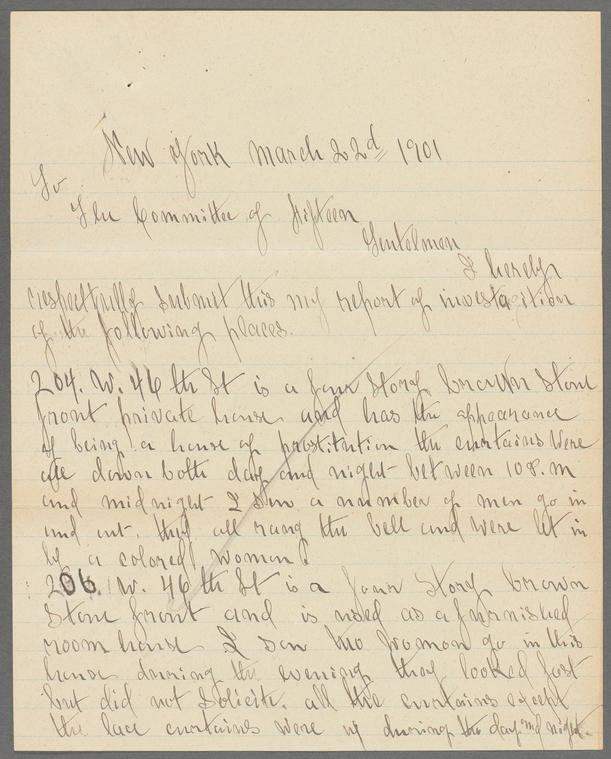 New York March 22d 1901
To
The Committee of Fifteen
Gentelmen
I hereby
respectfully submet this my report of investation
of the following places.
204. W. 46 th St is a four story brown stone
front private house and has the appearance
of being a house of prostitution the curtains were
all down both day and night between 10 P. m
and midnight I saw a number of men go in
and out. they all rang the bell and were let in
by a colored woman.
206. W. 46 th St is a four story brown
stone front and is used as a furnished
room house I saw two woman go in this
house durring the evening they looked fast
but did not solicite. all the curtains except
the lace curtains were up durring the day and night.